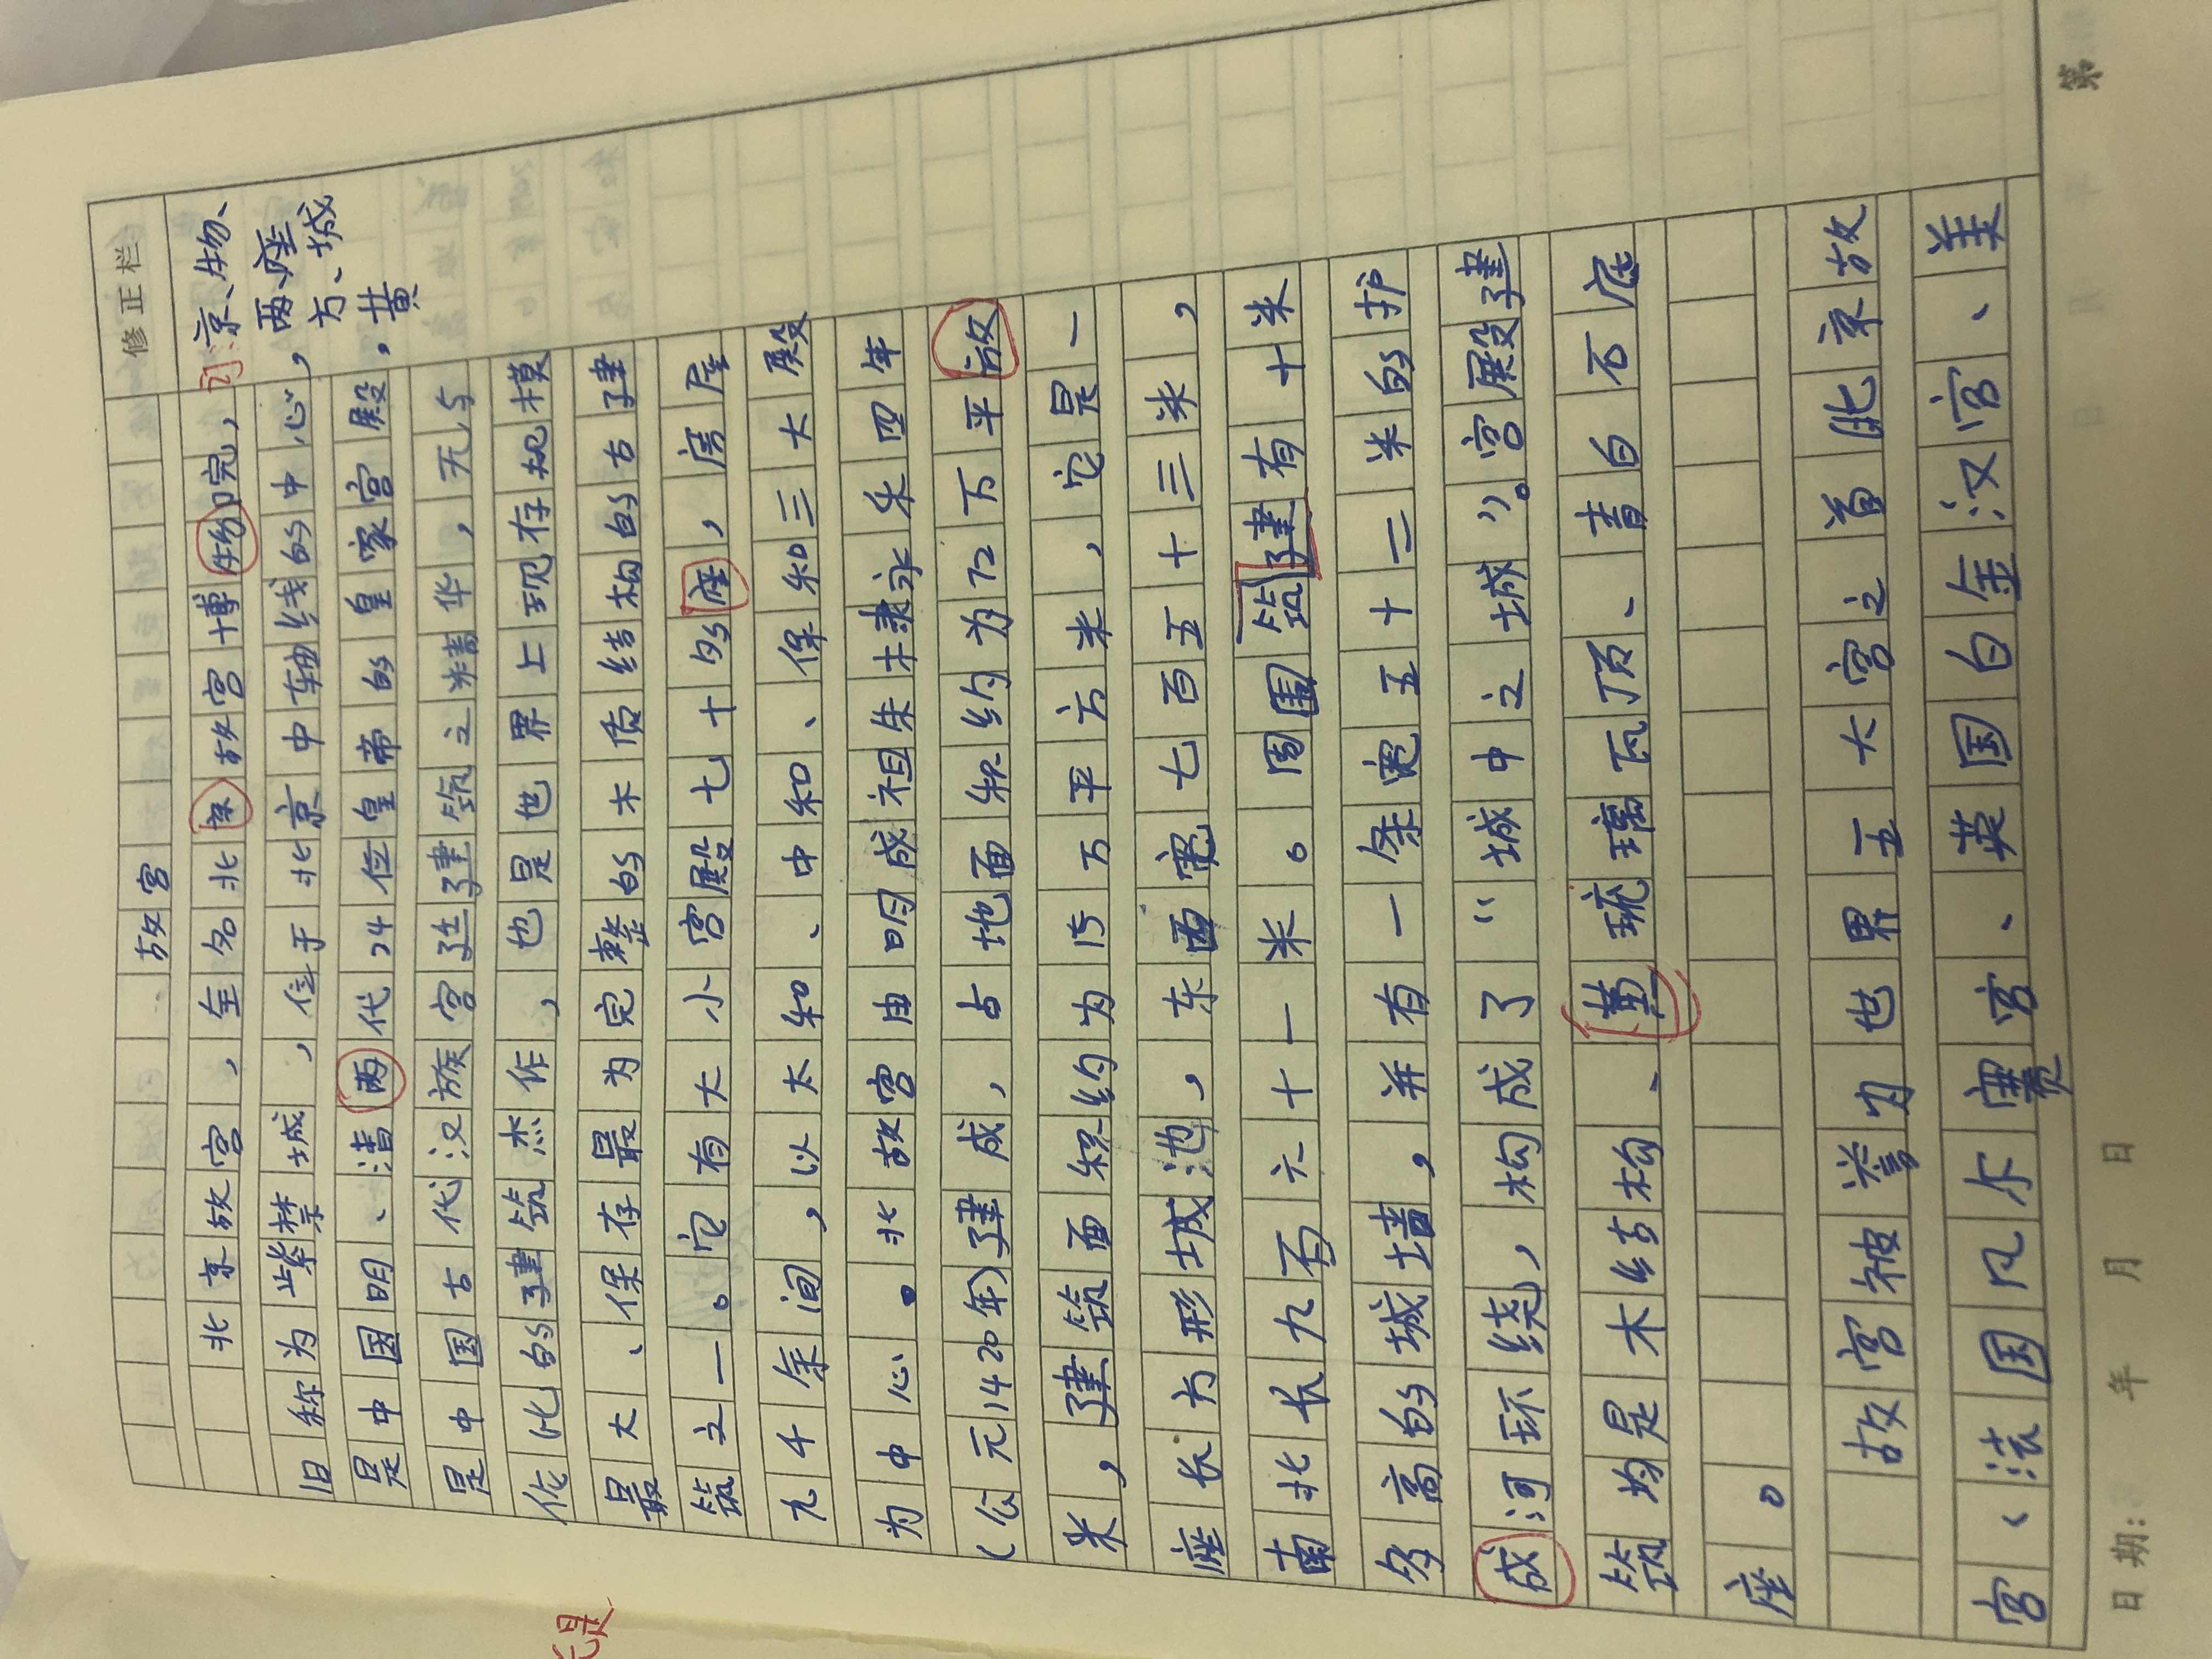 修正栏
故宫
北京故宫，全名北京故宫博物完，
订京、物、
旧称为紫禁城，位于北京中轴线的中心，
两、座
是中国明、清两代24位皇帝的皇家宫殿，
方、城
黄
是中国古代汉族宫廷建筑之精华，无与
伦比的建筑杰作，也是世界上现存规模
最大、保存最为完整的木质结构的古建
筑之一。它有大小宫殿七十多座，房屋
九千余间，以太和、中和、保和三大殿
为中心。北故宫由明成祖朱棣永乐四年
（公元1420年）建成，占地面积约为72万平
米，建筑面积约为15万平方米，它是一
座长方形城池，东西宽七百五十三米，
南北长九百六十一米。周围筑建有十米
多高的城墙，并有一条宽五十二米的护
成河环绕，构成了“城中之城”。宫殿建
筑均是木结构、黄琉璃瓦顶、青白石底
座。
故宫被誉为世界五大宫之首(北京故
宫、法国凡尔赛宫、英国白金汉宫、美
日期: 年 月 日
第